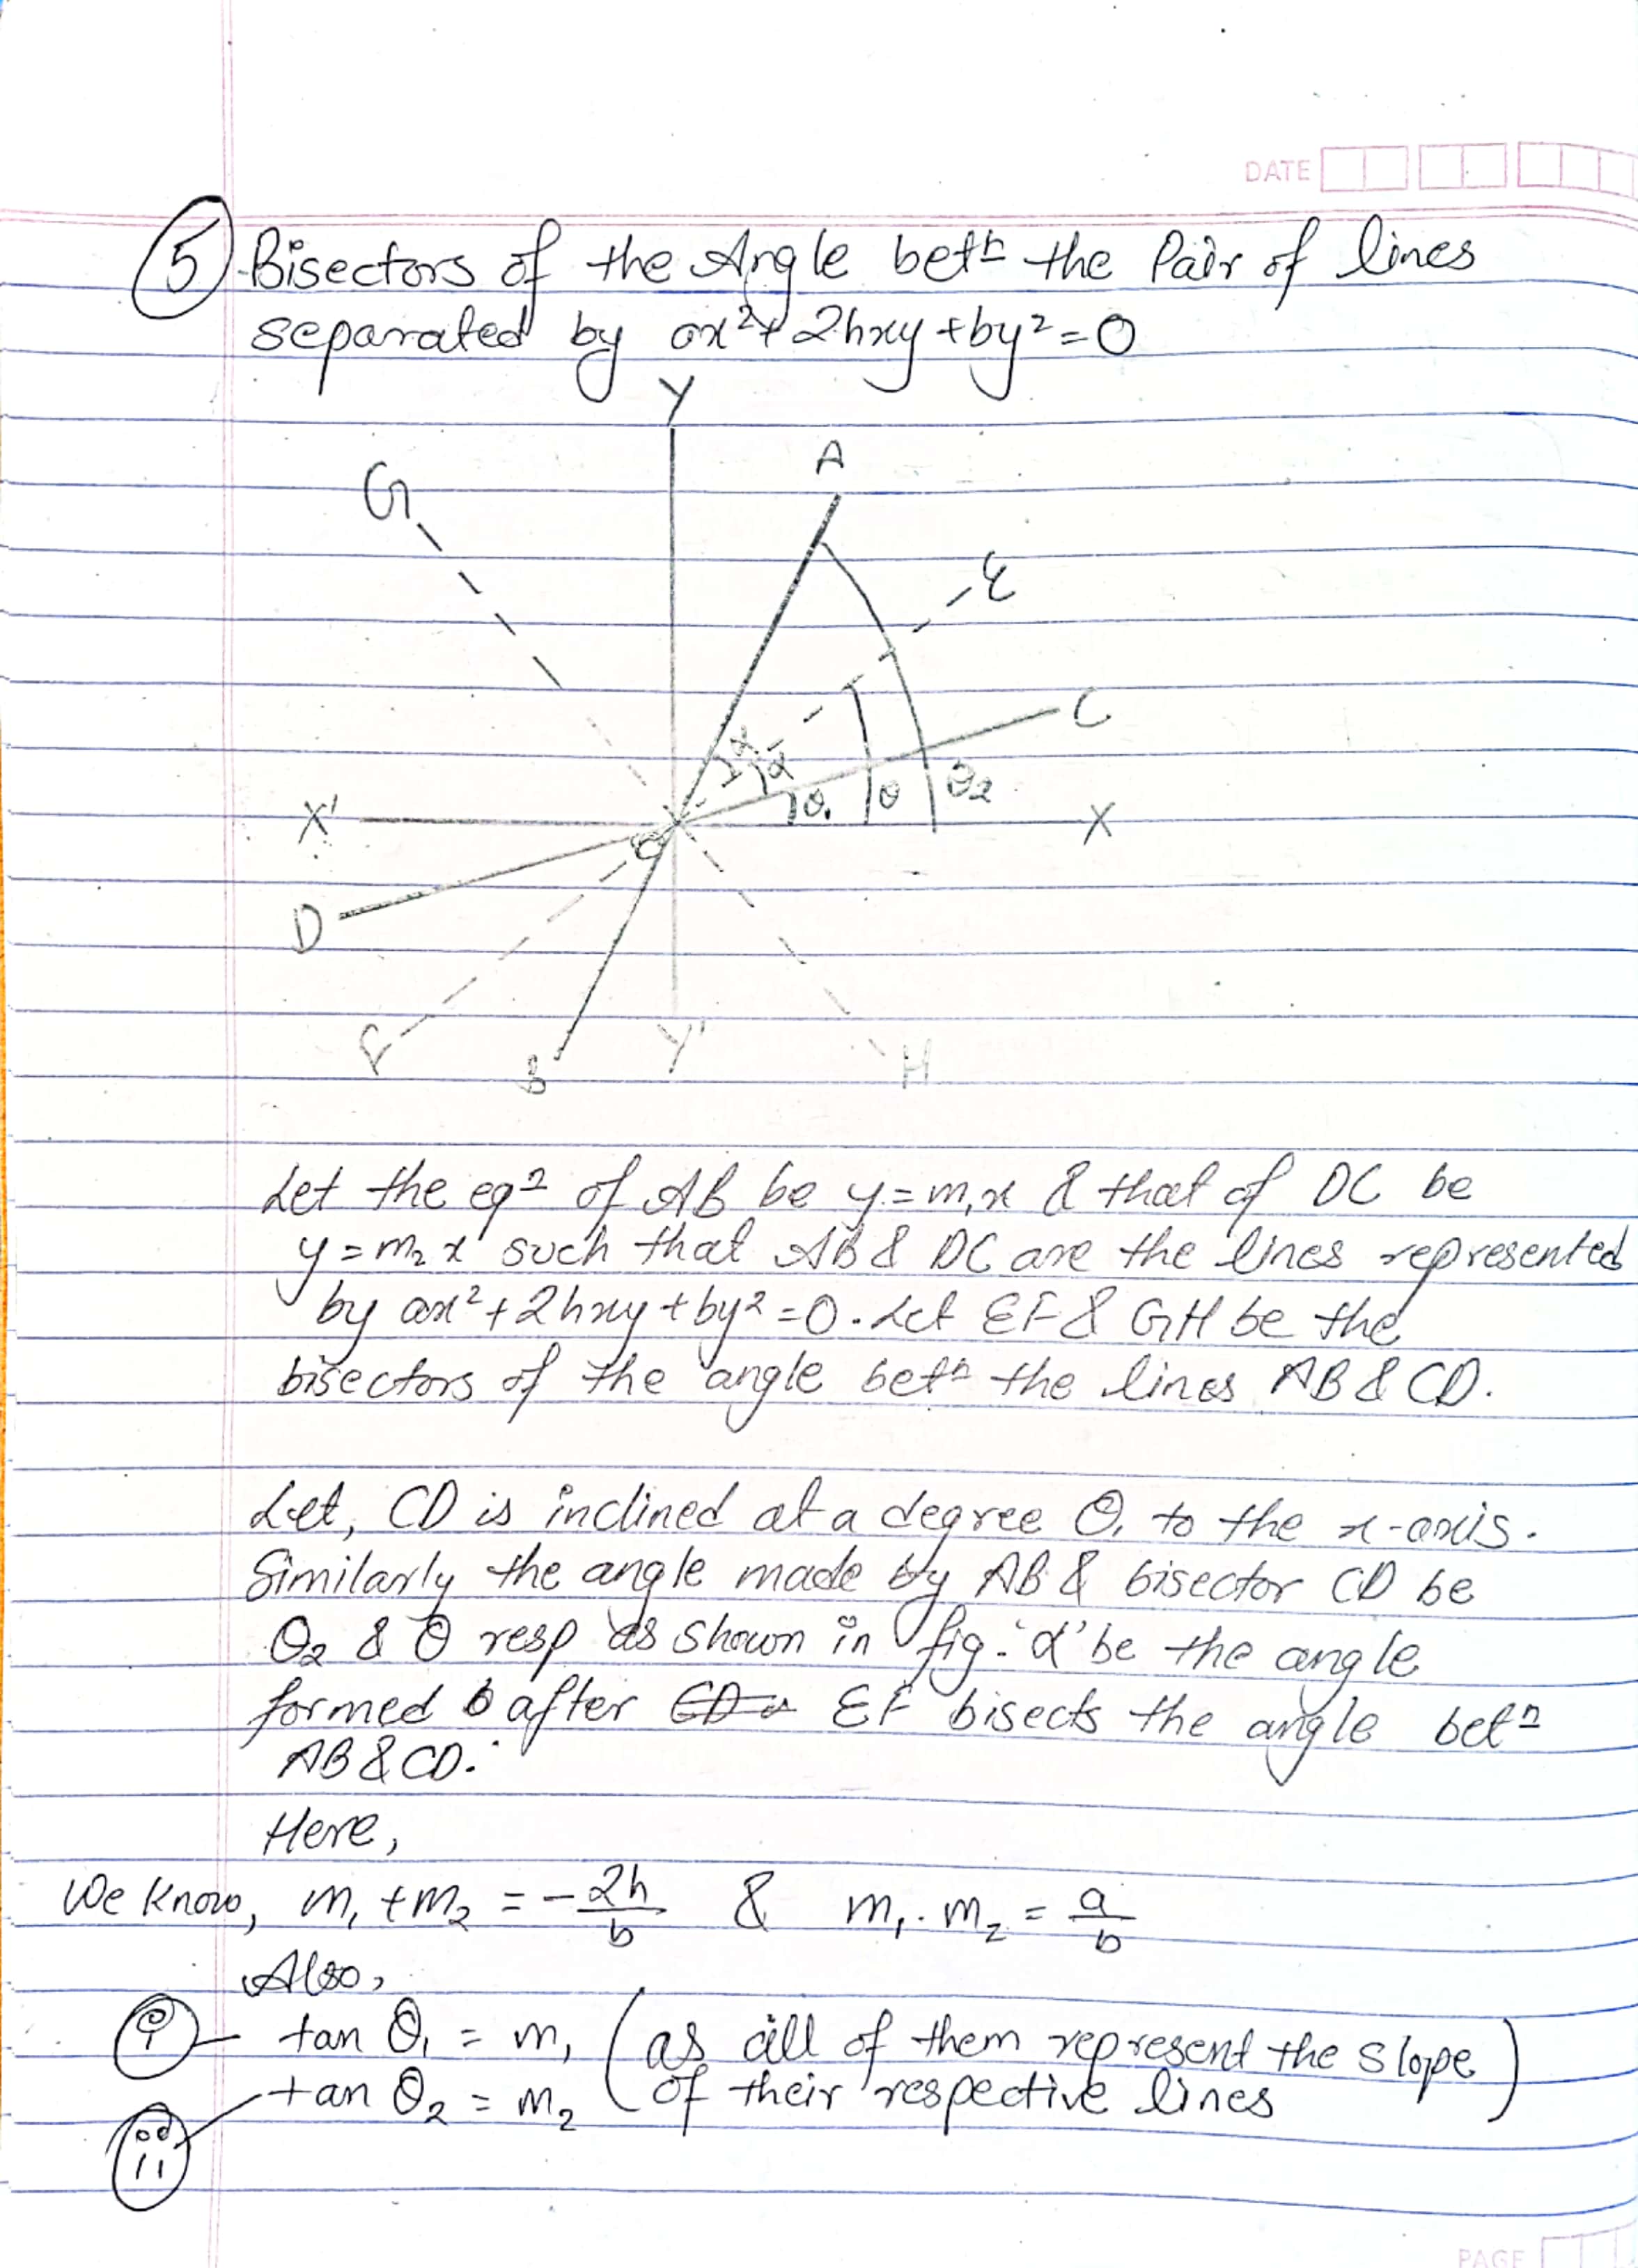 DATE
⑤ Bisectors of the Angle betⁿ the Pair of lines
separated by ax²+2hxy+by²=0
Y
A
G
E
C
α
α
θ₁ θ θ₂
X' X
O
D
F
B
Y'
H
Let the eqⁿ of AB be y=m₁x & that of DC be
y=m₂x such that AB & DC are the lines represented
by ax²+2hxy+by²=0. Let EF & GH be the
bisectors of the angle betⁿ the lines AB & CD.
Let, CD is inclined at a degree θ₁ to the x-axis.
Similarly the angle made by AB & bisector CD be
θ₂ & θ resp as shown in fig. 'α' be the angle
formed b after EF bisects the angle betⁿ
AB & CD.
Here,
We know, m₁+m₂ = -2h/b & m₁.m₂ = a/b
Also,
i - tan θ₁ = m₁ (as all of them represent the slope
ii - tan θ₂ = m₂ of their respective lines)
PAGE